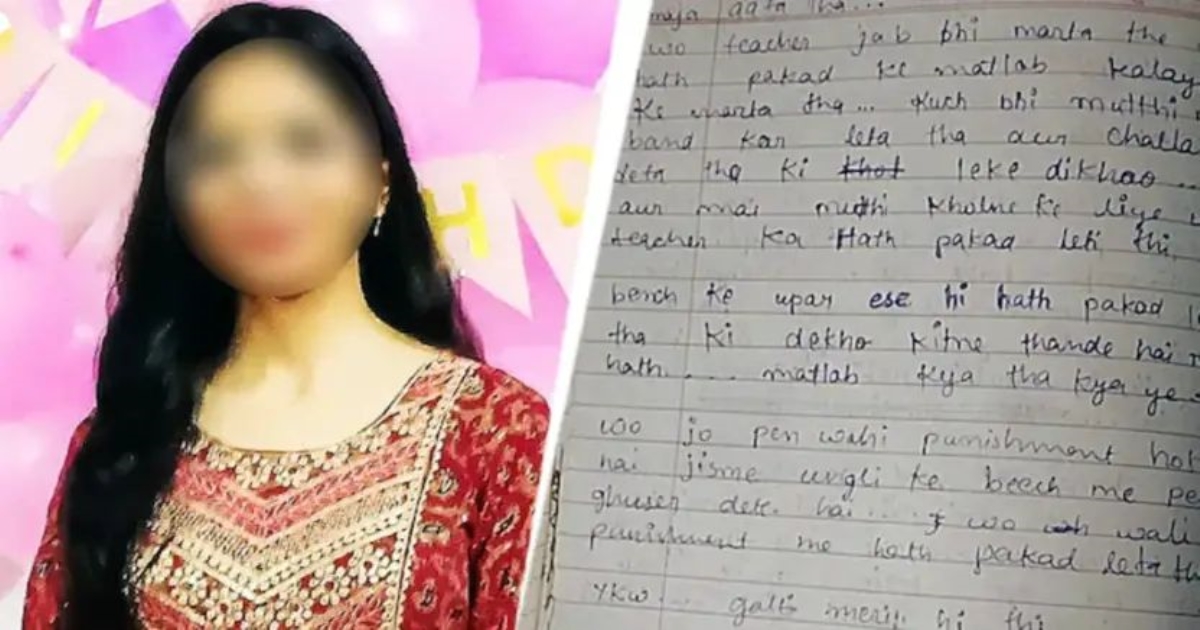 H D
maja aata tha...
wo teacher jab bhi marta the
hath pakad ke matlab kalay
ke marta tha... Kuch bhi mutthi
band kar leta tha aur challa
deta tha ki leke dikhao...
aur mai muthi kholne ke liye
teacher ka Hath pakad leti thi
bench ke upar ese hi hath pakad
tha ki dekho kitne thande hai
hath.... matlab kya tha kya ye
woo jo pen wahi punishment hot
hai jisme ungli ke beech me pe
ghuser dete hai... wo wali
punishment me hath pakad leta th
YKW... galti meri hi thi